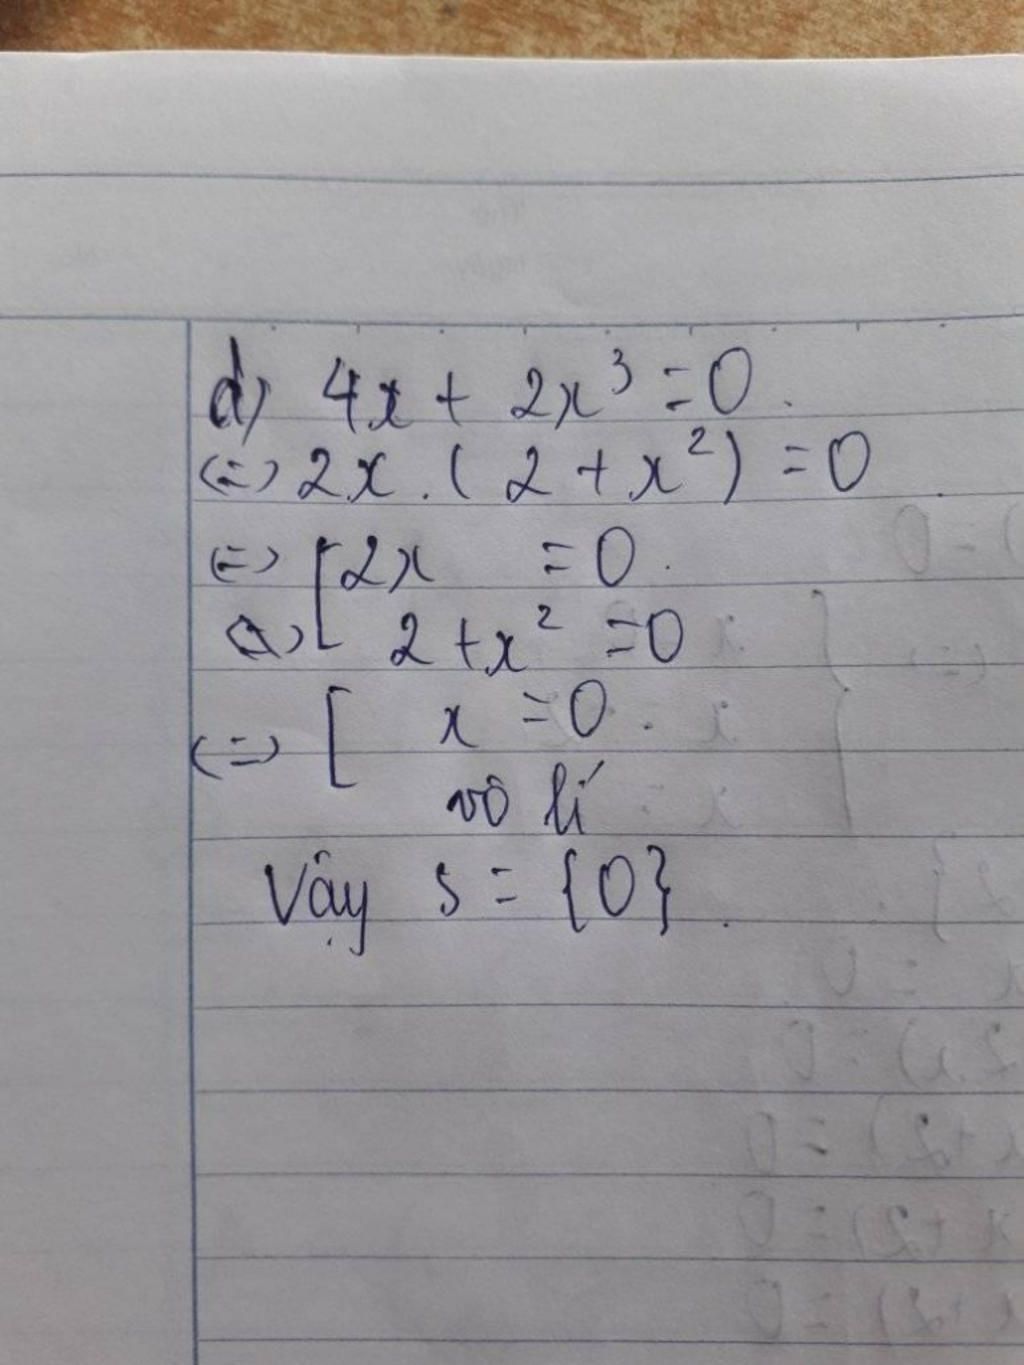 d) 4x + 2x³ = 0.
(=) 2x . ( 2 + x²) = 0
(=) [ 2x = 0.
2 + x² = 0
(=) [ x = 0.
vô lí
Vậy S = {0}.